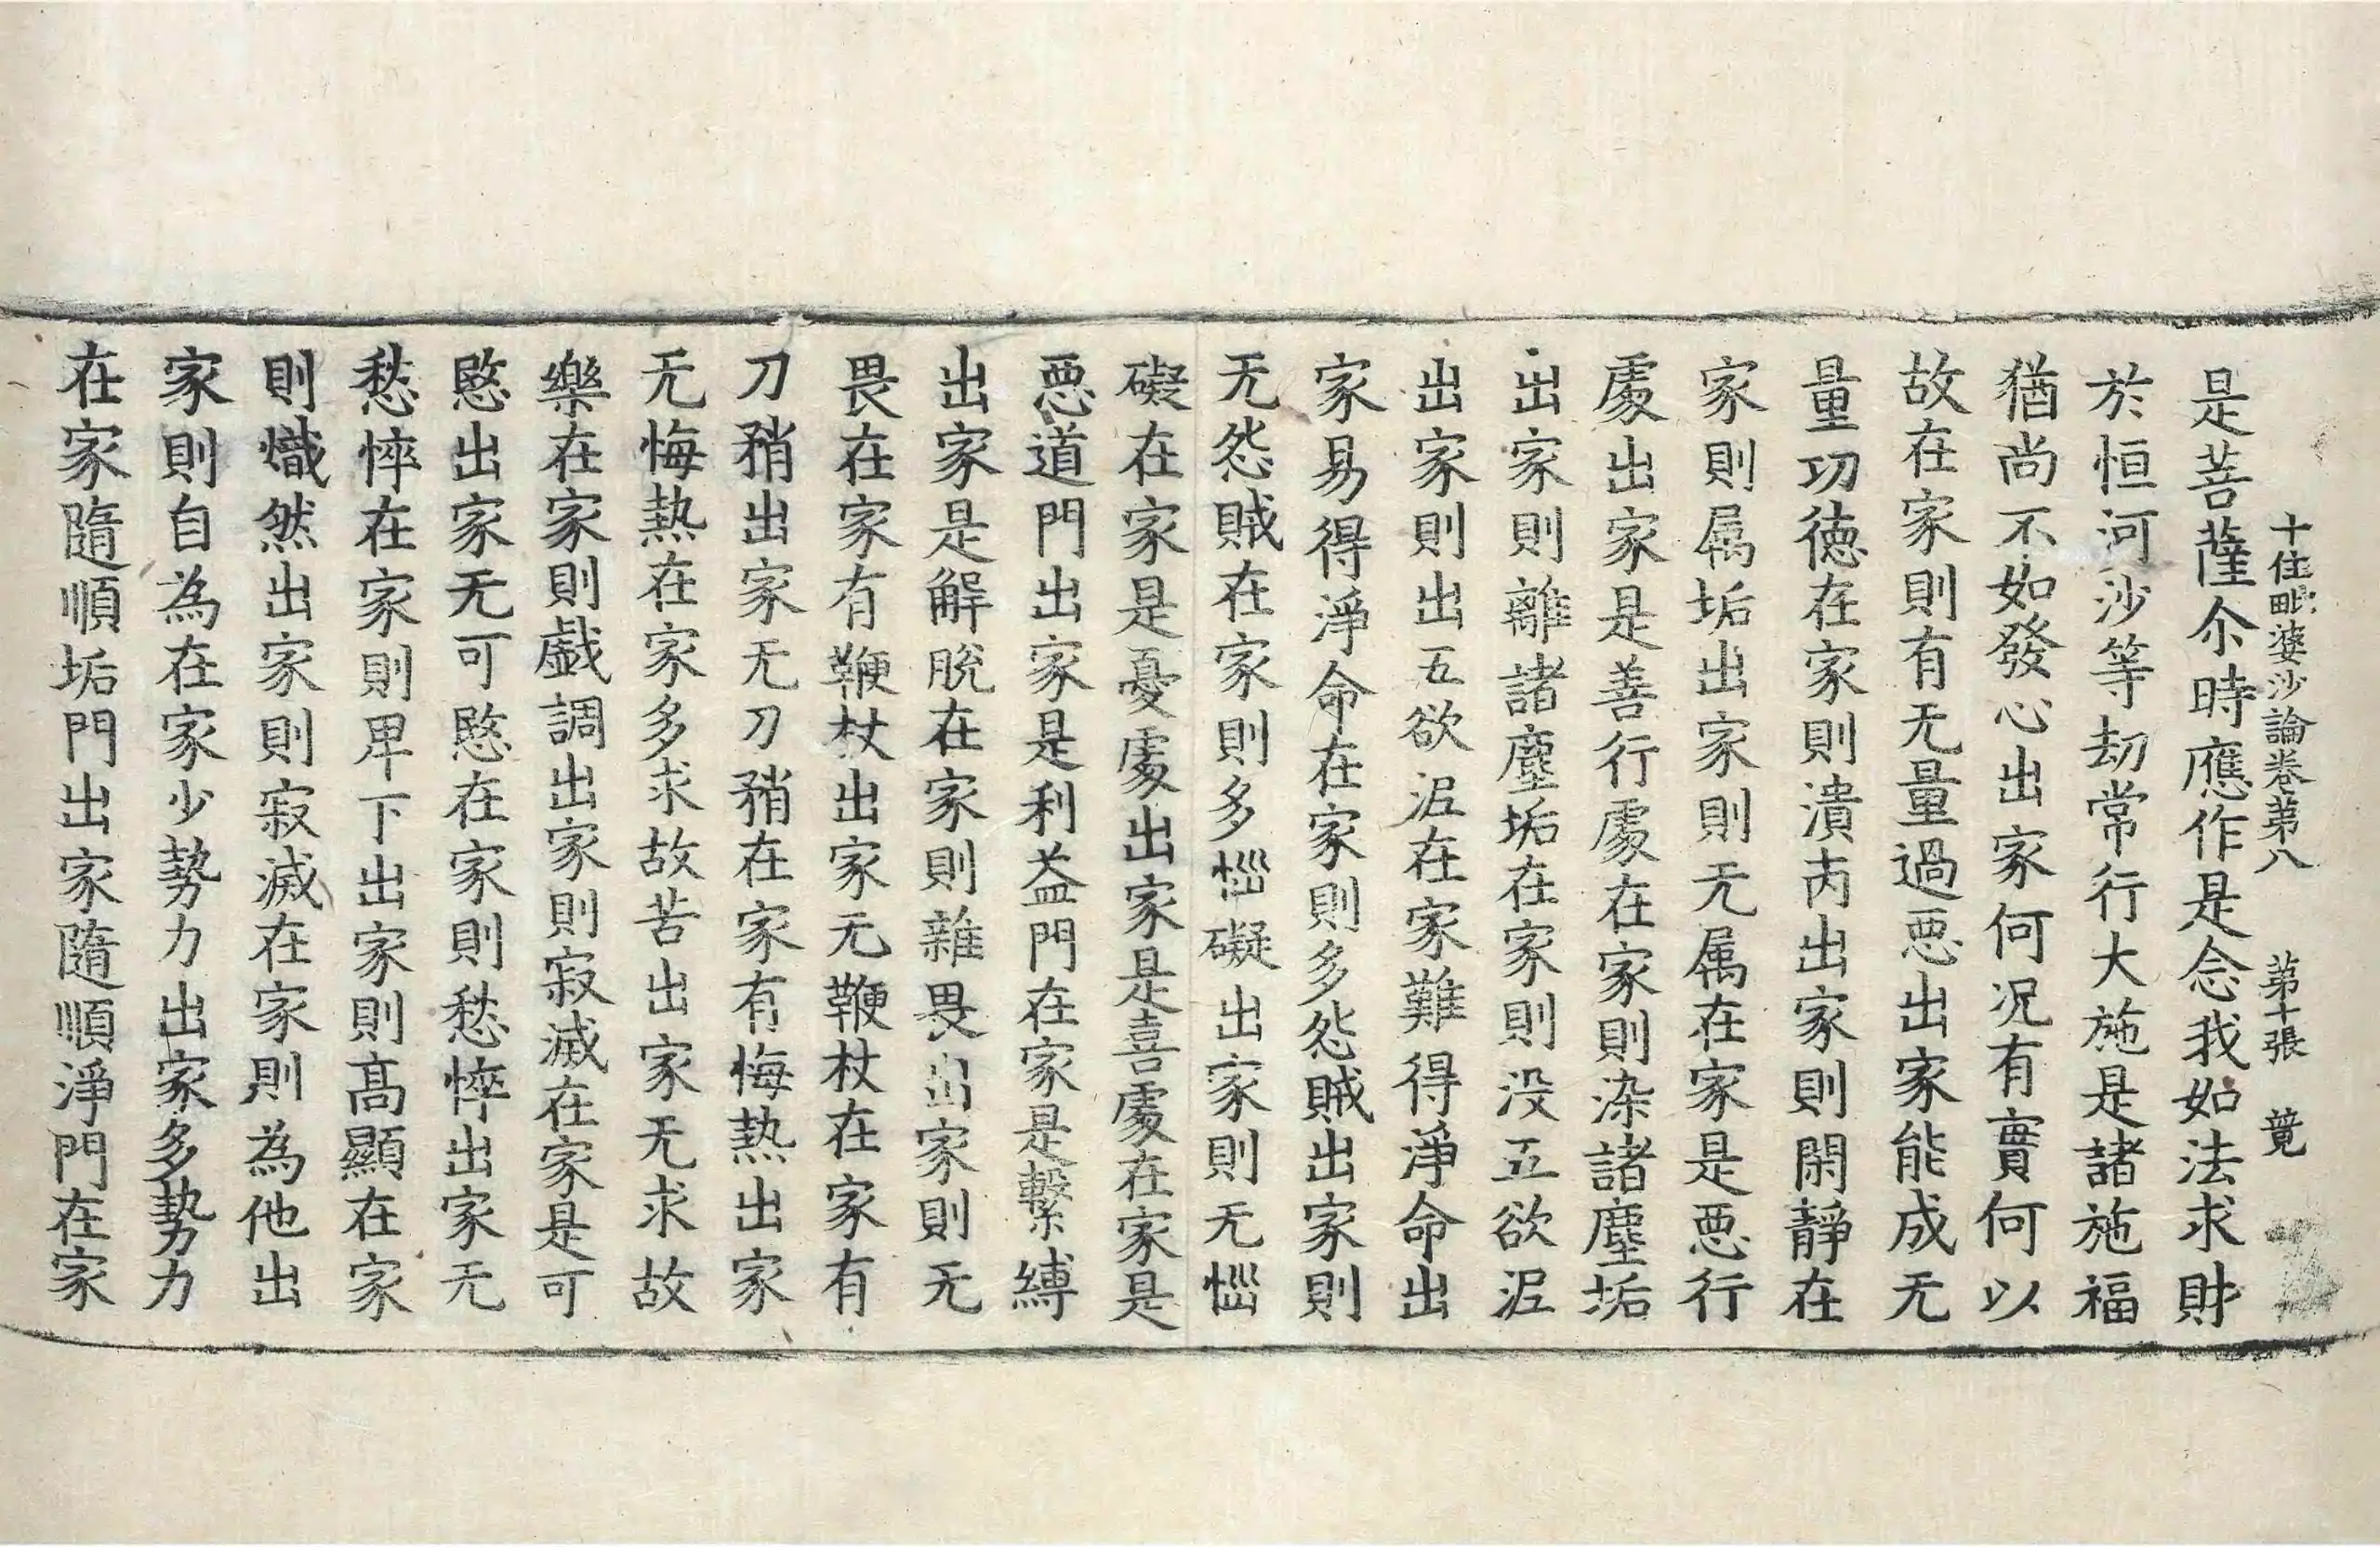 十住毗婆沙論卷第八　第十張　萈
是菩薩尒時應作是念我如法求財
於恒河沙等劫常行大施是諸施福
猶尚不如發心出家何况有實何以
故在家則有无量過惡出家能成无
量功徳在家則潰丙出家則閑靜在
家則属垢出家則无属在家是惡行
處出家是善行處在家則染諸塵垢
出家則離諸塵垢在家則没五欲泥
出家則出五欲泥在家難得淨命出
家易得淨命在家則多怨賊出家則
无怨賊在家則多惱礙出家則无惱
礙在家是憂處出家是喜處在家是
惡道門出家是利益門在家是繫縛
出家是解脫在家則雜畏出家則无
畏在家有鞭杖出家无鞭杖在家有
刀矟出家无刀矟在家有悔熱出家
无悔熱在家多求故苦出家无求故
樂在家則戯調出家則寂滅在家是可
愍出家无可愍在家則愁悴出家无
愁悴在家則卑下出家則髙顯在家
則熾然出家則寂滅在家則為他出
家則自為在家少勢力出家多勢力
在家隨順垢門出家隨順淨門在家